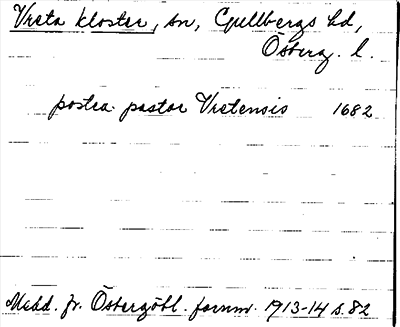 Vreta kloster, sn, Gullbergs hd,
Österg. l.
postea pastor Vretensis 1682
Medd. fr. Östergötl. fornm. 1913-14 s. 82